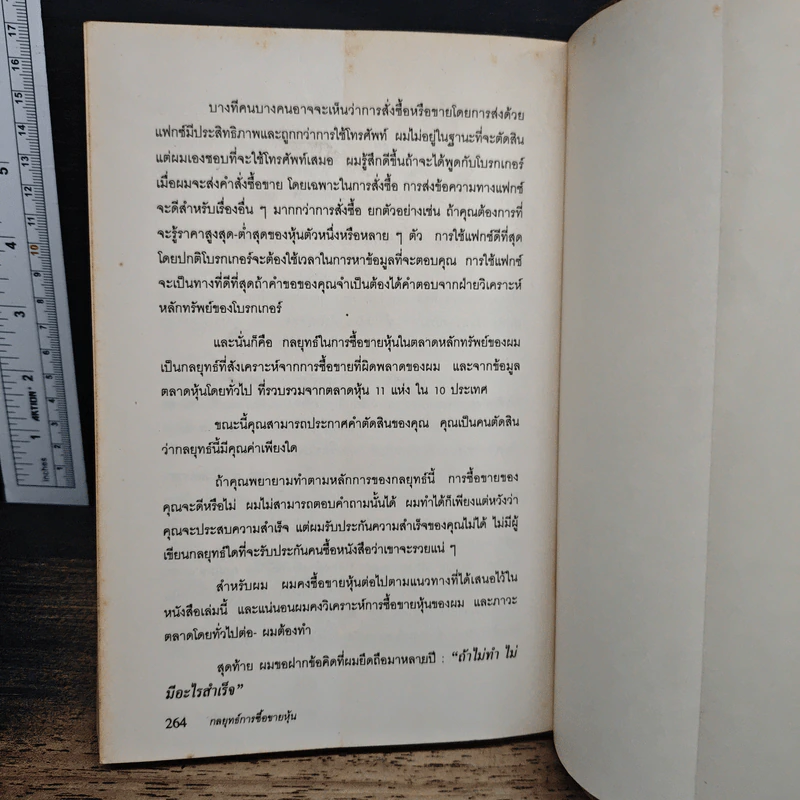 บางทีคนบางคนอาจจะเห็นว่าการสั่งซื้อหรือขายโดยการส่งด้วย
แฟกซ์มีประสิทธิภาพและถูกกว่าการใช้โทรศัพท์ ผมไม่อยู่ในฐานะที่จะตัดสิน
แต่ผมเองชอบที่จะใช้โทรศัพท์เสมอ ผมรู้สึกดีขึ้นถ้าจะได้พูดกับโบรกเกอร์
เมื่อผมจะส่งคำสั่งซื้อขาย โดยเฉพาะในการสั่งซื้อ การส่งข้อความทางแฟกซ์
จะดีสำหรับเรื่องอื่น ๆ มากกว่าการสั่งซื้อ ยกตัวอย่างเช่น ถ้าคุณต้องการที่
จะรู้ราคาสูงสุด-ต่ำสุดของหุ้นตัวหนึ่งหรือหลาย ๆ ตัว การใช้แฟกซ์ดีที่สุด
โดยปกติโบรกเกอร์จะต้องใช้เวลาในการหาข้อมูลที่จะตอบคุณ การใช้แฟกซ์
จะเป็นทางที่ดีที่สุดถ้าคำขอของคุณจำเป็นต้องได้คำตอบจากฝ่ายวิเคราะห์
หลักทรัพย์ของโบรกเกอร์
และนั่นก็คือ กลยุทธ์ในการซื้อขายหุ้นในตลาดหลักทรัพย์ของผม
เป็นกลยุทธ์ที่สังเคราะห์จากการซื้อขายที่ผิดพลาดของผม และจากข้อมูล
ตลาดหุ้นโดยทั่วไป ที่รวบรวมจากตลาดหุ้น 11 แห่ง ใน 10 ประเทศ
ขณะนี้คุณสามารถประกาศคำตัดสินของคุณ คุณเป็นคนตัดสิน
ว่ากลยุทธ์นี้มีคุณค่าเพียงใด
ถ้าคุณพยายามทำตามหลักการของกลยุทธ์นี้ การซื้อขายของ
คุณจะดีหรือไม่ ผมไม่สามารถตอบคำถามนั้นได้ ผมทำได้ก็เพียงแต่หวังว่า
คุณจะประสบความสำเร็จ แต่ผมรับประกันความสำเร็จของคุณไม่ได้ ไม่มีผู้
เขียนกลยุทธ์ใดที่จะรับประกันคนซื้อหนังสือว่าเขาจะรวยแน่ ๆ
สำหรับผม ผมคงซื้อขายหุ้นต่อไปตามแนวทางที่ได้เสนอไว้ใน
หนังสือเล่มนี้ และแน่นอนผมคงวิเคราะห์การซื้อขายหุ้นของผม และภาวะ
ตลาดโดยทั่วไปต่อ- ผมต้องทำ
สุดท้าย ผมขอฝากข้อคิดที่ผมยึดถือมาหลายปี : "ถ้าไม่ทำ ไม่
มีอะไรสำเร็จ"
264 กลยุทธ์การซื้อขายหุ้น
17
16
15
14
13
12
11
10
9
8
7
6
5
4
3
2
1
5
4
3
2
1
inches